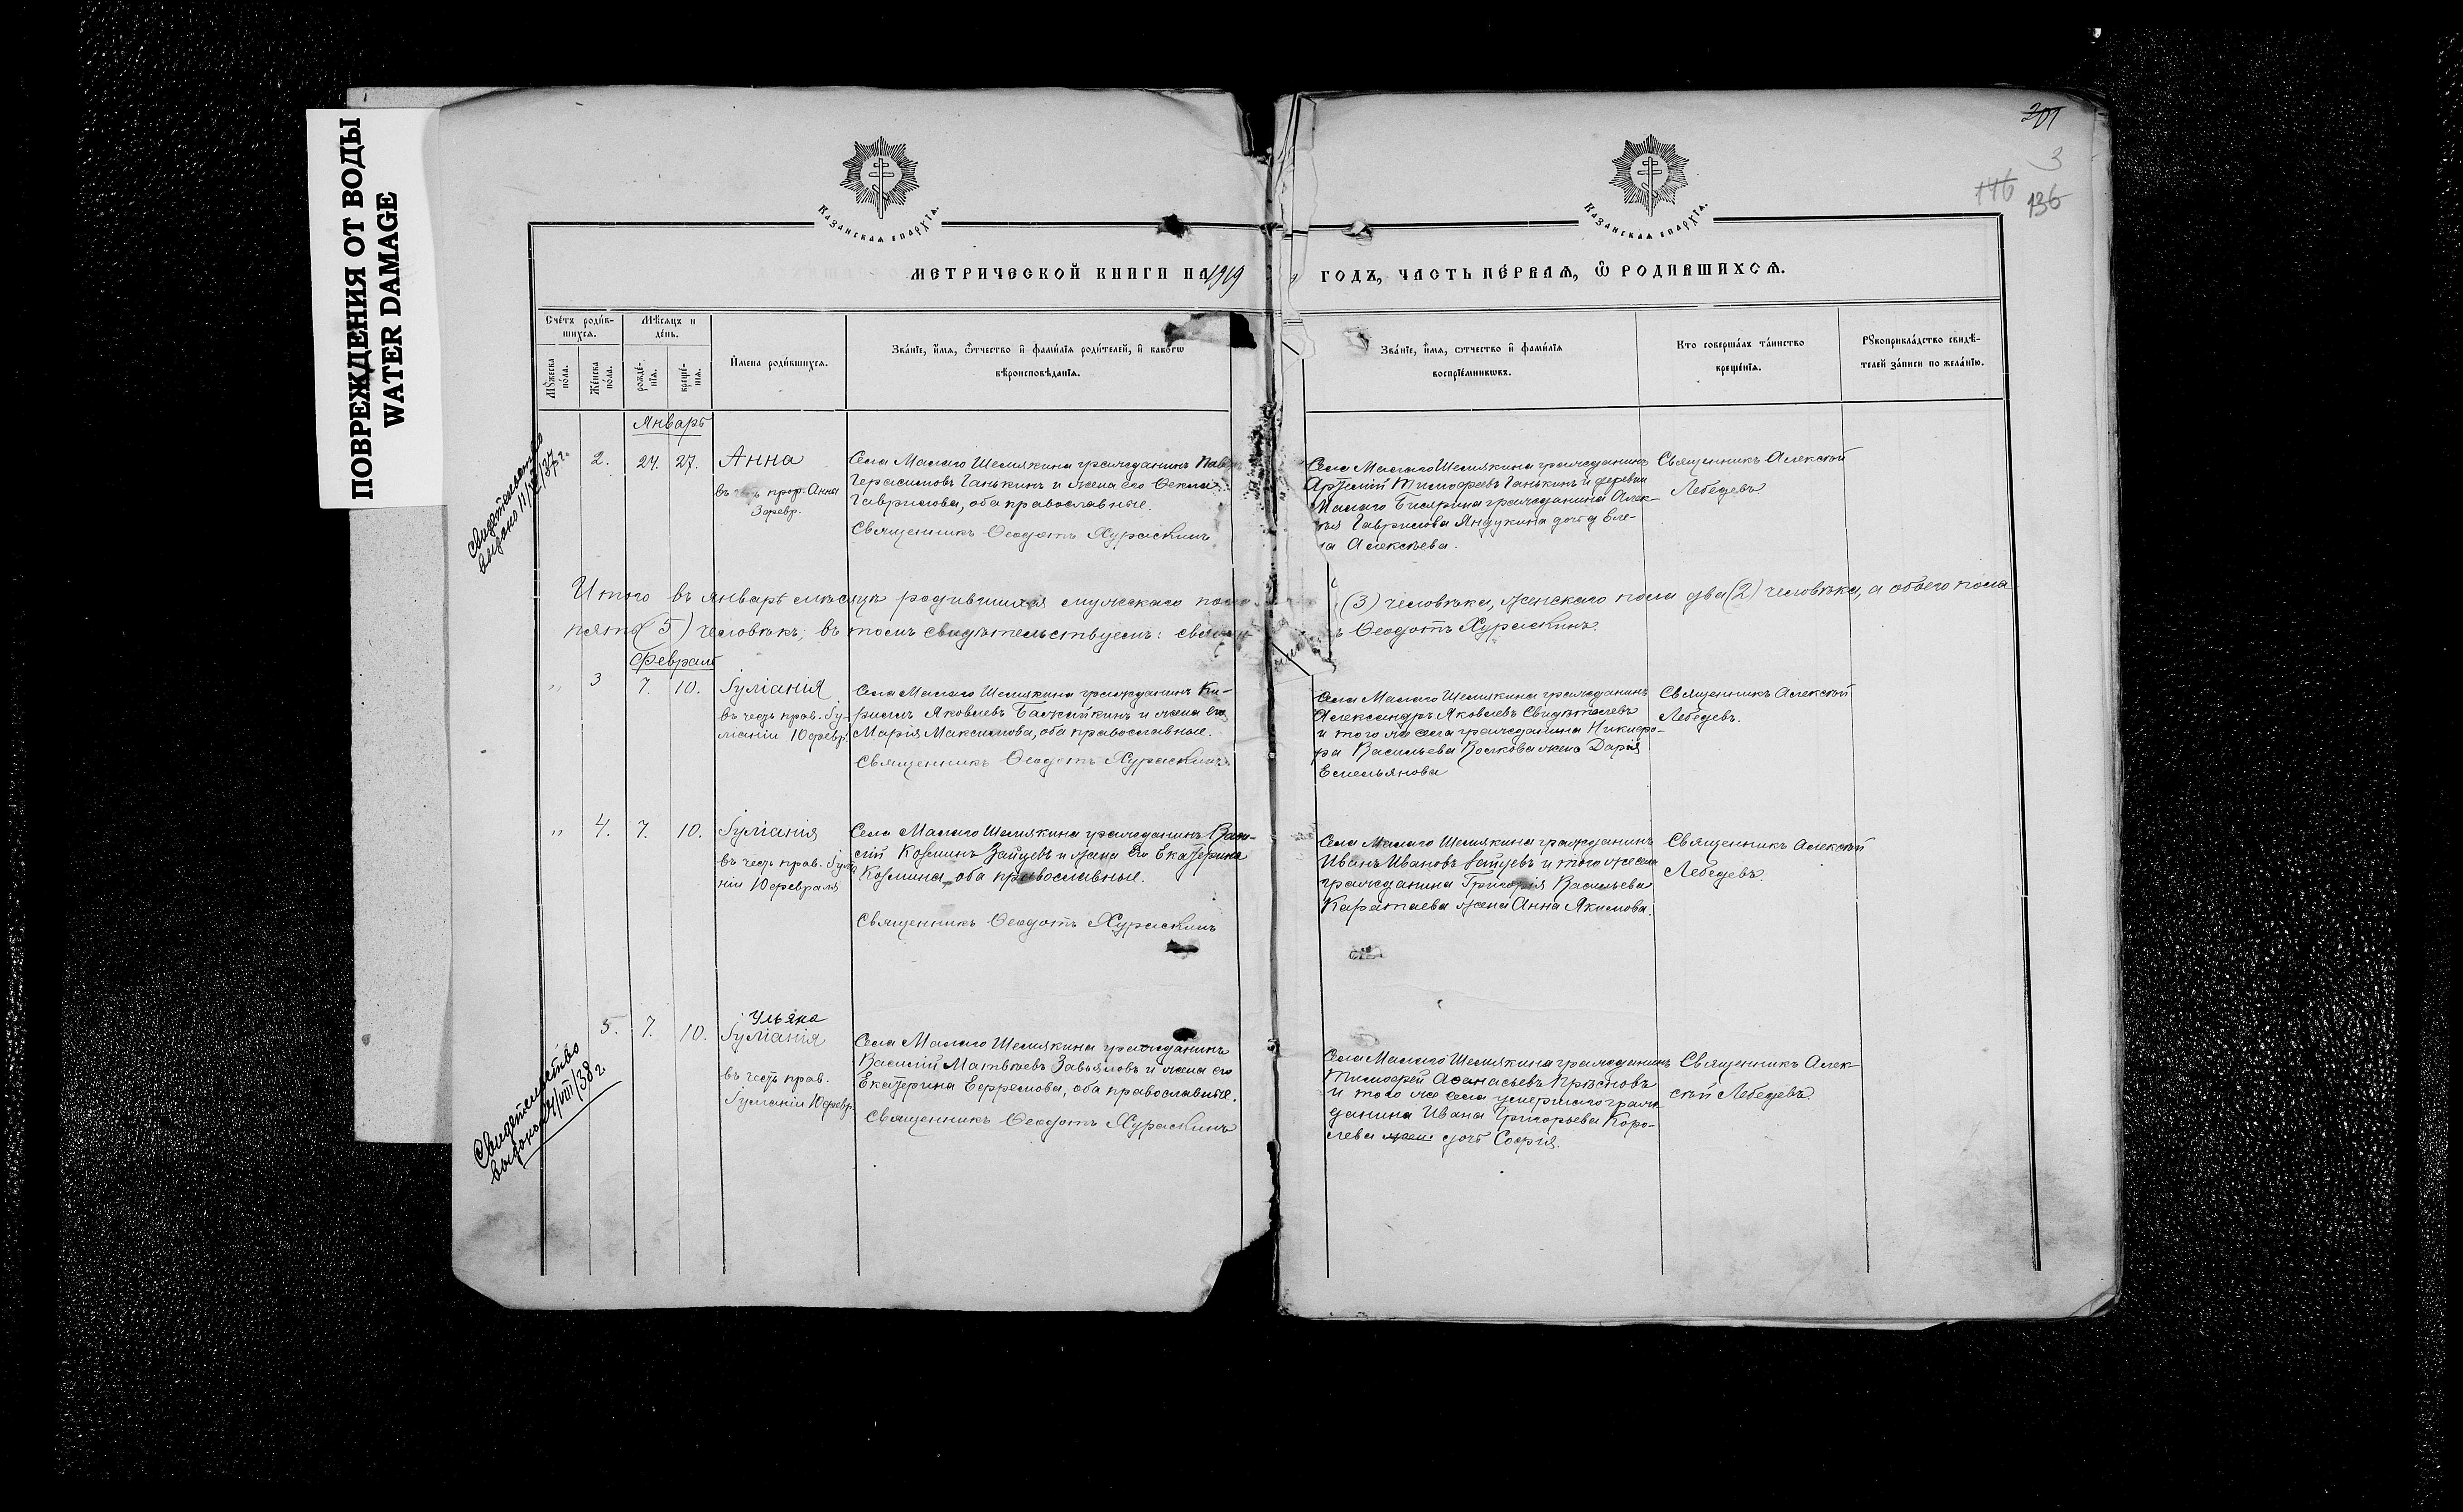 ПОВРЕЖДЕНИЯ ОТ ВОДЫ
WATER DAMAGE
201
3
146 136
Казанская епархїа.
Казанская епархїа.
МЕТРИЧЕСКОЙ КНИГИ НА 1919
ГОДЪ, ЧАСТЬ ПЕ́РВАЯ, Ѿ РОДИВШИХСѦ.
Сче́тъ роди́в-
шихсѧ.
Мꙋ́жеска
по́ла.
Же́нска
по́ла.
Мѣ́сѧцъ и
де́нь.
рожде́-
нїѧ.
креще́-
нїѧ.
Имена роди́вшихсѧ.
Зва́нїе, и́мѧ, ѻ҆́тчество и҆ фами́лїѧ роди́телей, и҆ како́гѡ
вѣроисповѣ́данїѧ.
Зва́нїе, и́мѧ, ѻ́тчество и҆ фами́лїѧ
воспрїе́мникѡвъ.
Кто соверша́лъ та́инство
креще́нїѧ.
Рꙋкоприкла́дство свидѣ́-
телей за́писи по жела́нїю.
Январь
Свидетельство
выдано 11/ /37 г.
2. 24. 27. Анна
въ честь прор. Анны
3 февр.
Села Малаго Шемякина гражданинъ Пав
Герасимовъ Ганькинъ и жена его Ѳекла
Гаврилова, оба православные.
Священникъ Ѳеодотъ Хураскинъ
Села Малаго Шемякина гражданинъ
Артемій Тимофеевъ Ганькинъ и деревни
Малаго Бисярина гражданина Алек-
Гаврилова Яндукина дочь Еле-
на Алексѣева.
Священникъ Алексѣй
Лебедевъ
Итого въ январѣ мѣсяцѣ родившихся мужскаго пола
(3) человѣка, женскаго пола два (2) человѣка, а обоего пола
пять (5) человѣкъ; въ томъ свидѣтельствуемъ: священ
ъ Ѳеодотъ Хураскинъ.
Февраль
" 3 7. 10. Іуліанія
въ честь прав. Іу-
ліаніи 10 февр.
Села Малаго Шемякина гражданинъ Ки-
риллъ Яковлевъ Бажайкинъ и жена его
Марія Максимова, оба православные.
Священникъ Ѳеодотъ Хураскинъ.
Села Малаго Шемякина гражданинъ
Александръ Яковлевъ Свидѣтелевъ
и того же села гражданина Никифо-
ра Васильева Волкова жена Дарія
Емельянова
Священникъ Алексѣй
Лебедевъ.
" 4. 7. 10. Іуліанія
въ честь прав. Іуліа
ніи 10 февраля
Села Малаго Шемякина гражданинъ Васи-
лій Козминъ Зайцевъ и жена его Екатерина
Козмина, оба православные.
Священникъ Ѳеодотъ Хураскинъ
Села Малаго Шемякина гражданинъ
Иванъ Ивановъ Зайцевъ и того же села
гражданина Григорія Васильева
Каратаева жена Анна Якимова.
Священникъ Алексѣй
Лебедевъ.
Свидетельство
выдано 24/VIII/38 г.
5. 7. 10. Ульяна
Іуліанія
въ честь прав.
Іуліаніи 10 февр.
Села Малаго Шемякина гражданинъ
Василій Матвѣевъ Завьяловъ и жена его
Екатерина Ефремова, оба православные.
Священникъ Ѳеодотъ Хураскинъ
Села Малаго Шемякина гражданинъ
Тимофей Аѳанасьевъ Прѣсновъ
и того же села умершаго граж-
данина Ивана Григорьева Коро-
лева жена дочь Софія.
Священникъ Алек-
сѣй Лебедевъ.